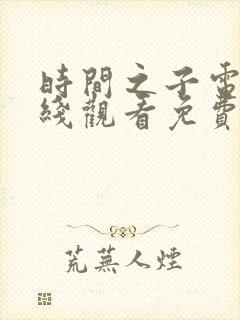 時間之子電
綫觀看免費
荒蕪人煙